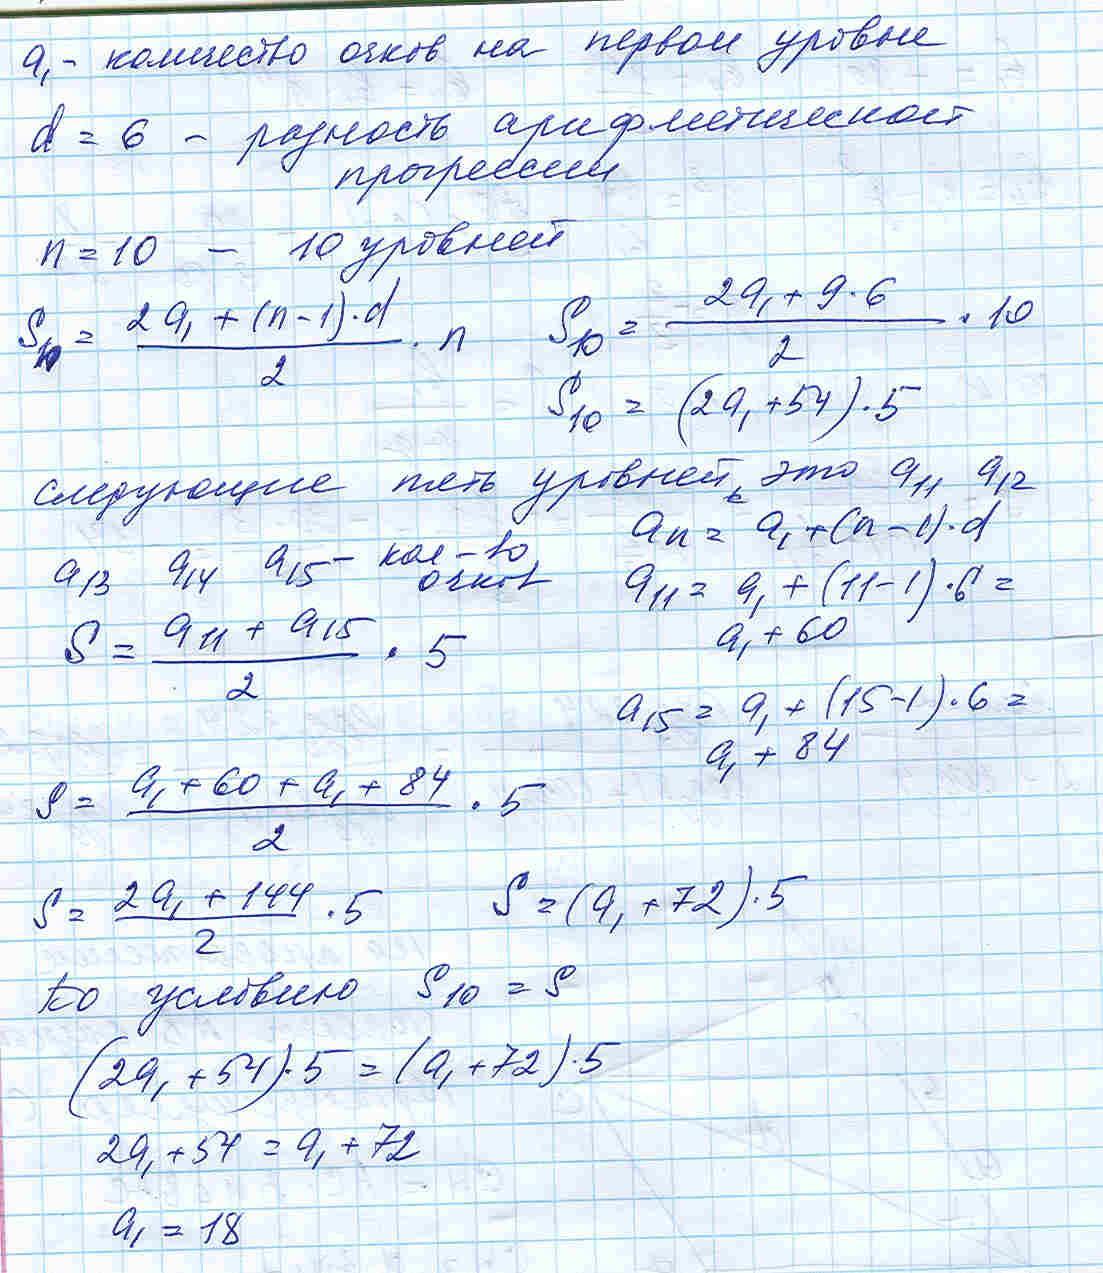 a₁ - количество очков на первом уровне
d = 6 - разность арифметической
прогрессии
n = 10 - 10 уровней
S₁₀ = (2a₁ + (n-1)·d)/2 · n
S₁₀ = (2a₁ + 9·6)/2 · 10
S₁₀ = (2a₁ + 54)·5
следующие пять уровней, это a₁₁ a₁₂
a₁₃ a₁₄ a₁₅ - кол-во
очков
aₙ = a₁ + (n-1)·d
a₁₁ = a₁ + (11-1)·6 =
a₁ + 60
S = (a₁₁ + a₁₅)/2 · 5
a₁₅ = a₁ + (15-1)·6 =
a₁ + 84
S = (a₁ + 60 + a₁ + 84)/2 · 5
S = (2a₁ + 144)/2 · 5
S = (a₁ + 72)·5
По условию S₁₀ = S
(2a₁ + 54)·5 = (a₁ + 72)·5
2a₁ + 54 = a₁ + 72
a₁ = 18